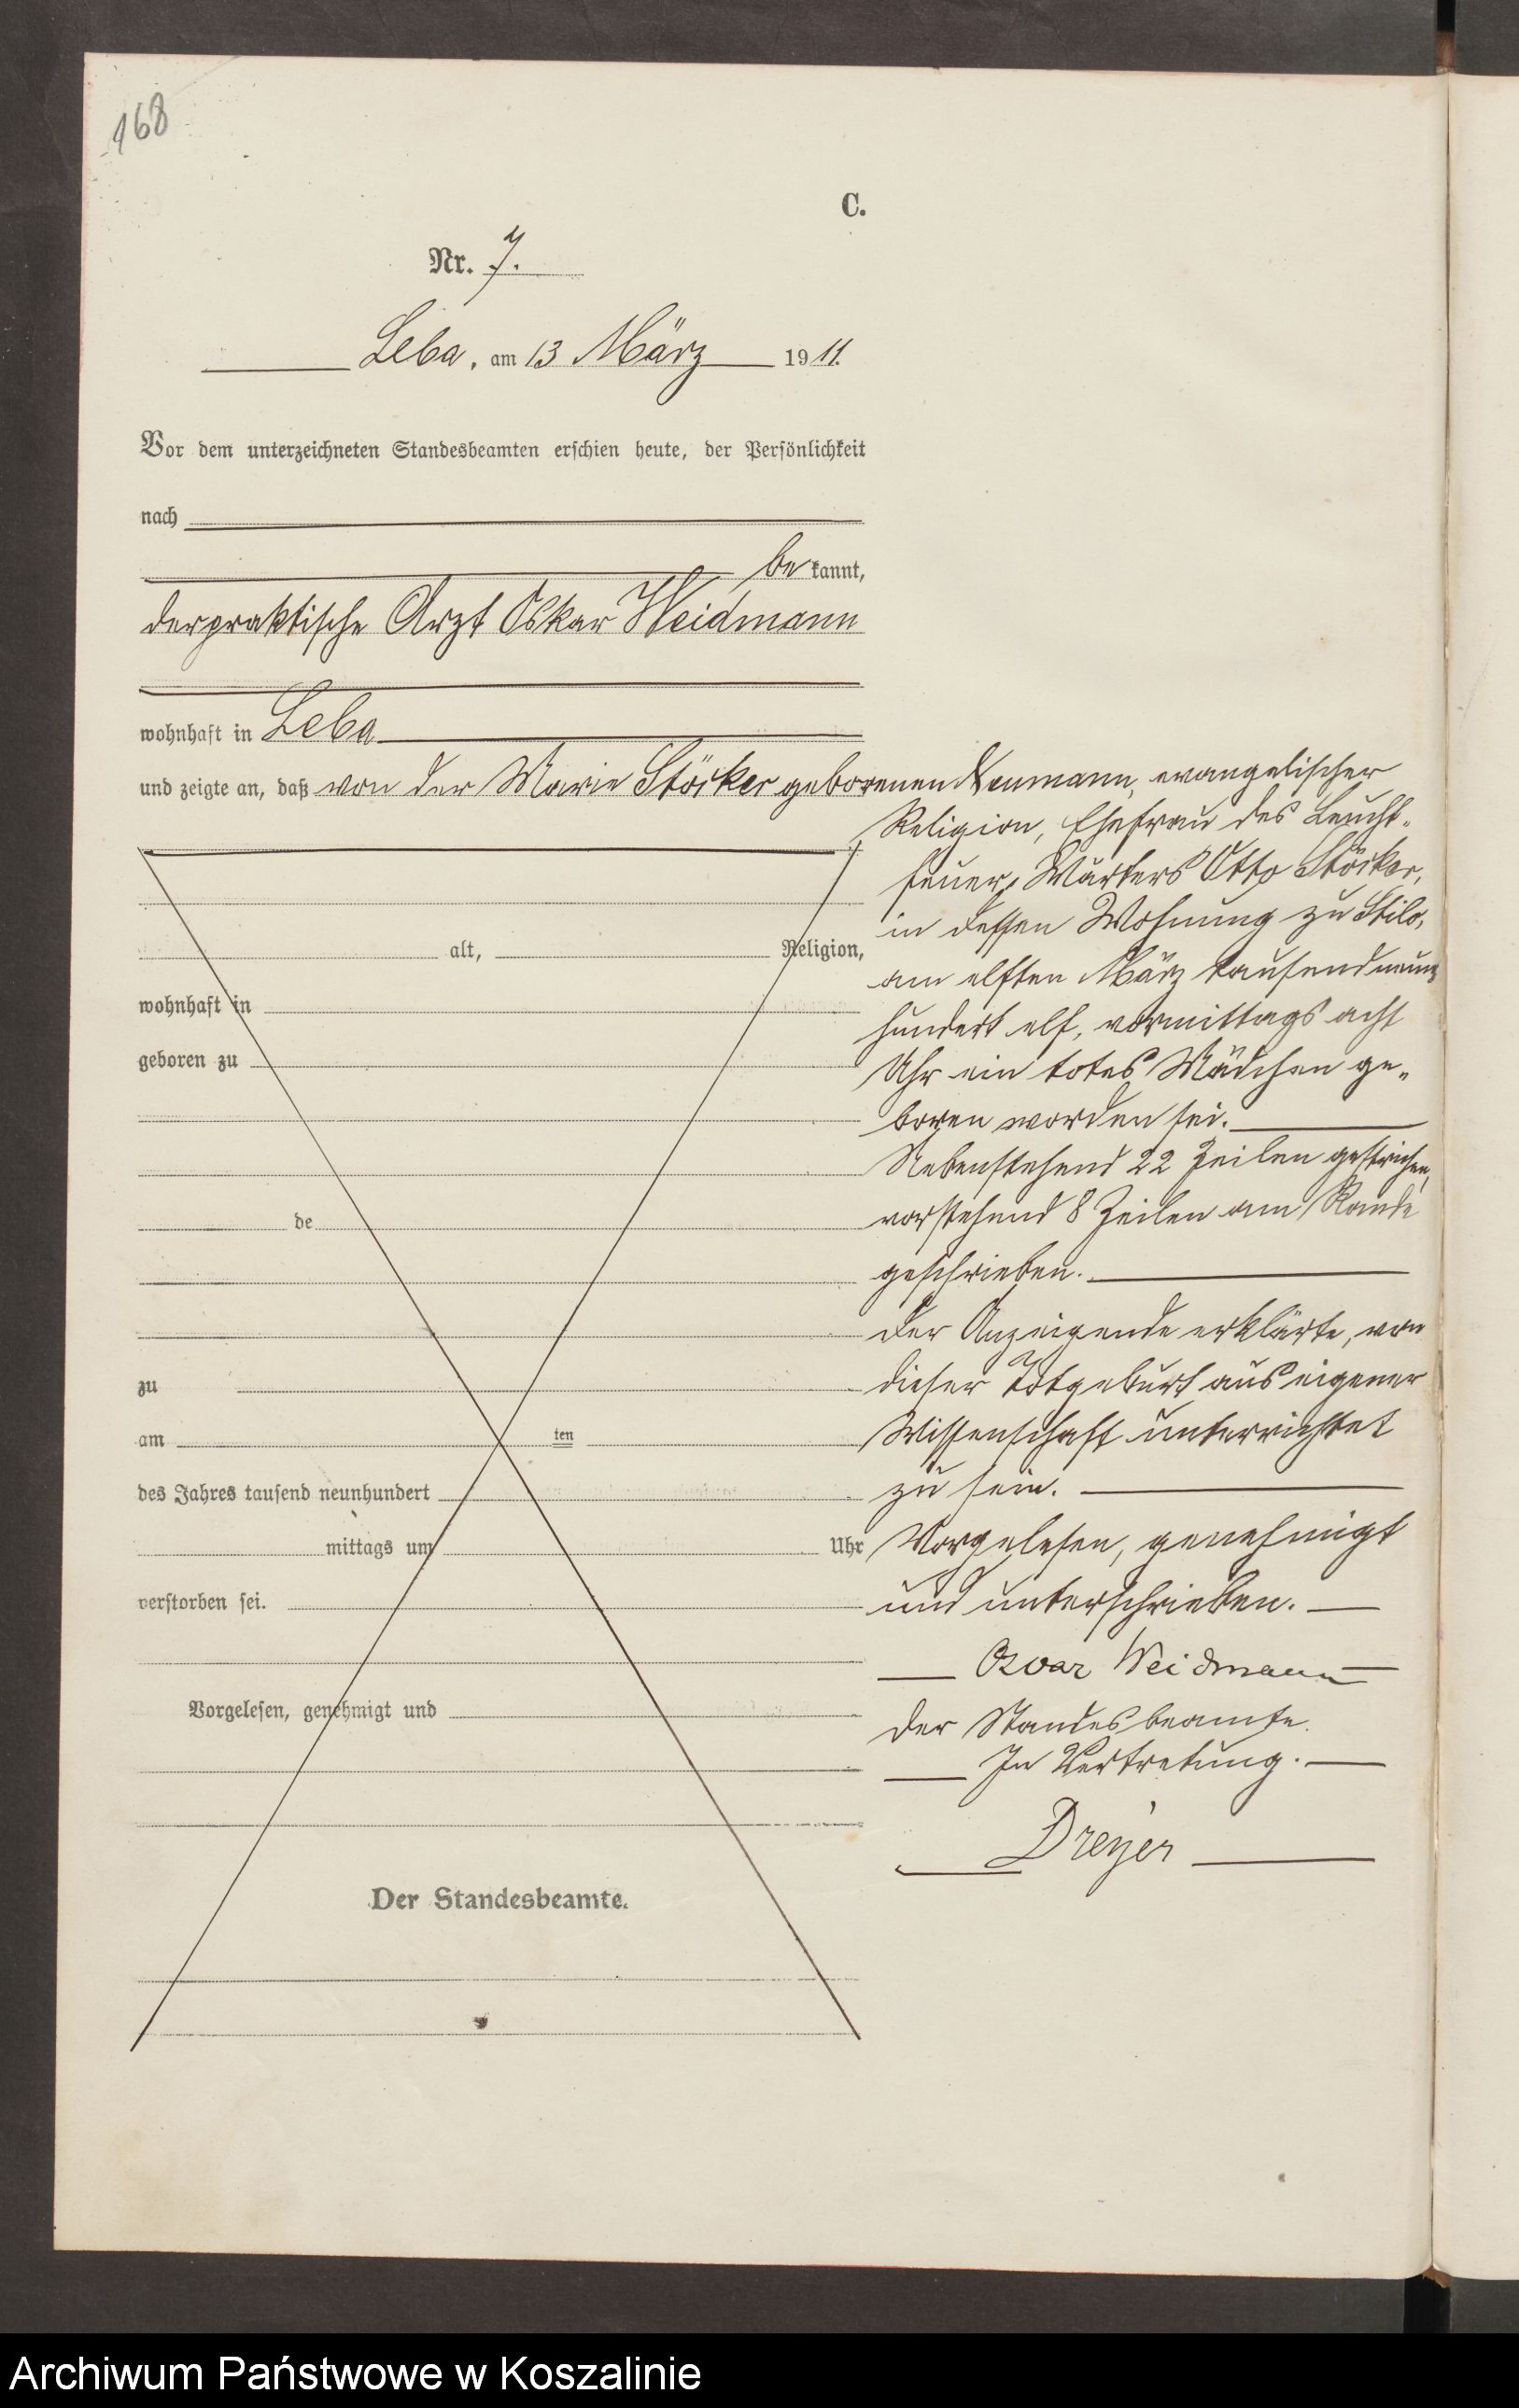 168
C.
Nr. 7.
Leba, am 13 März 1911.
Vor dem unterzeichneten Standesbeamten erschien heute, der Persönlichkeit
nach
be kannt,
der praktische Arzt Oskar Weidmann
wohnhaft in Leba
und zeigte an, daß von der Marie Störker geborenen Neumann, evangelischer
Religion, Ehefrau des Leucht-
feuer-Wärters Otto Störker,
in dessen Wohnung zu Stilo,
am elften März tausendneun
hundert elf, vormittags acht
Uhr ein totes Mädchen ge-
boren worden sei.
Nebenstehend 22 Zeilen gestrichen,
vorstehend 8 Zeilen am Rande
geschrieben.
Der Anzeigende erklärte, von
dieser Totgeburt aus eigener
Wissenschaft unterrichtet
zu sein.
Vorgelesen, genehmigt
und unterschrieben.
Oscar Weidmann
Der Standesbeamte.
In Vertretung.
Dreyer
alt, Religion,
wohnhaft in
geboren zu
de
zu
am ten
des Jahres tausend neunhundert
mittags um Uhr
verstorben sei.
Vorgelesen, genehmigt und
Der Standesbeamte.
Archiwum Państwowe w Koszalinie